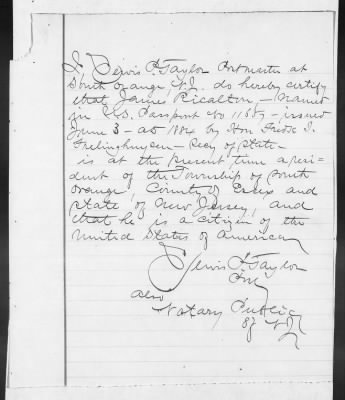 I, Lewis P. Taylor Postmaster at
South Orange, N.J. do hereby certify
that James Ricalton - named
in U.S. Passport No 11687 - issued
June 3 - AD 1884 by Hon Fredk T.
Frelinghuysen - Secy of State -
is at the present time a resi-
dent of the Township of South
Orange, County of Essex and
State of New Jersey, and
that he is a citizen of the
United States of America
Lewis P. Taylor
P.M.
also
Notary Public
of N.J.